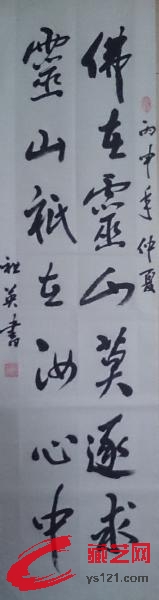 佛在靈山莫逐求
靈山祇在汝心中
丙申年仲夏
祖英書
藏艺网
ys121.com